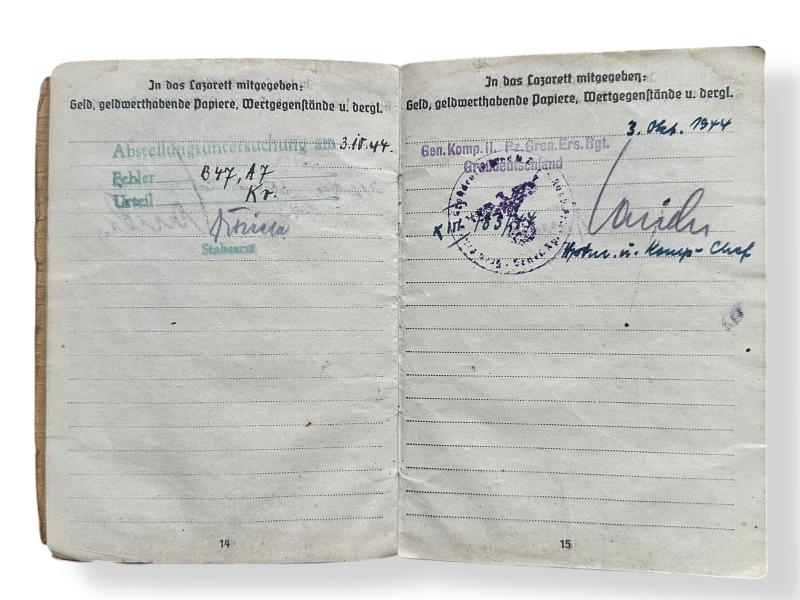 In das Lazarett mitgegeben:
Geld, geldwerthabende Papiere, Wertgegenstände u. dergl.
Abstellungsuntersuchung am 3.10.44.
Fehler B47, A7
Urteil Kv.
Stabsarzt
14
In das Lazarett mitgegeben:
Geld, geldwerthabende Papiere, Wertgegenstände u. dergl.
3. Okt. 1944
Gen.Komp.II. Pz.Gren.Ers.Rgt.
Großdeutschland
Hptm. u. Komp.-Chef
15